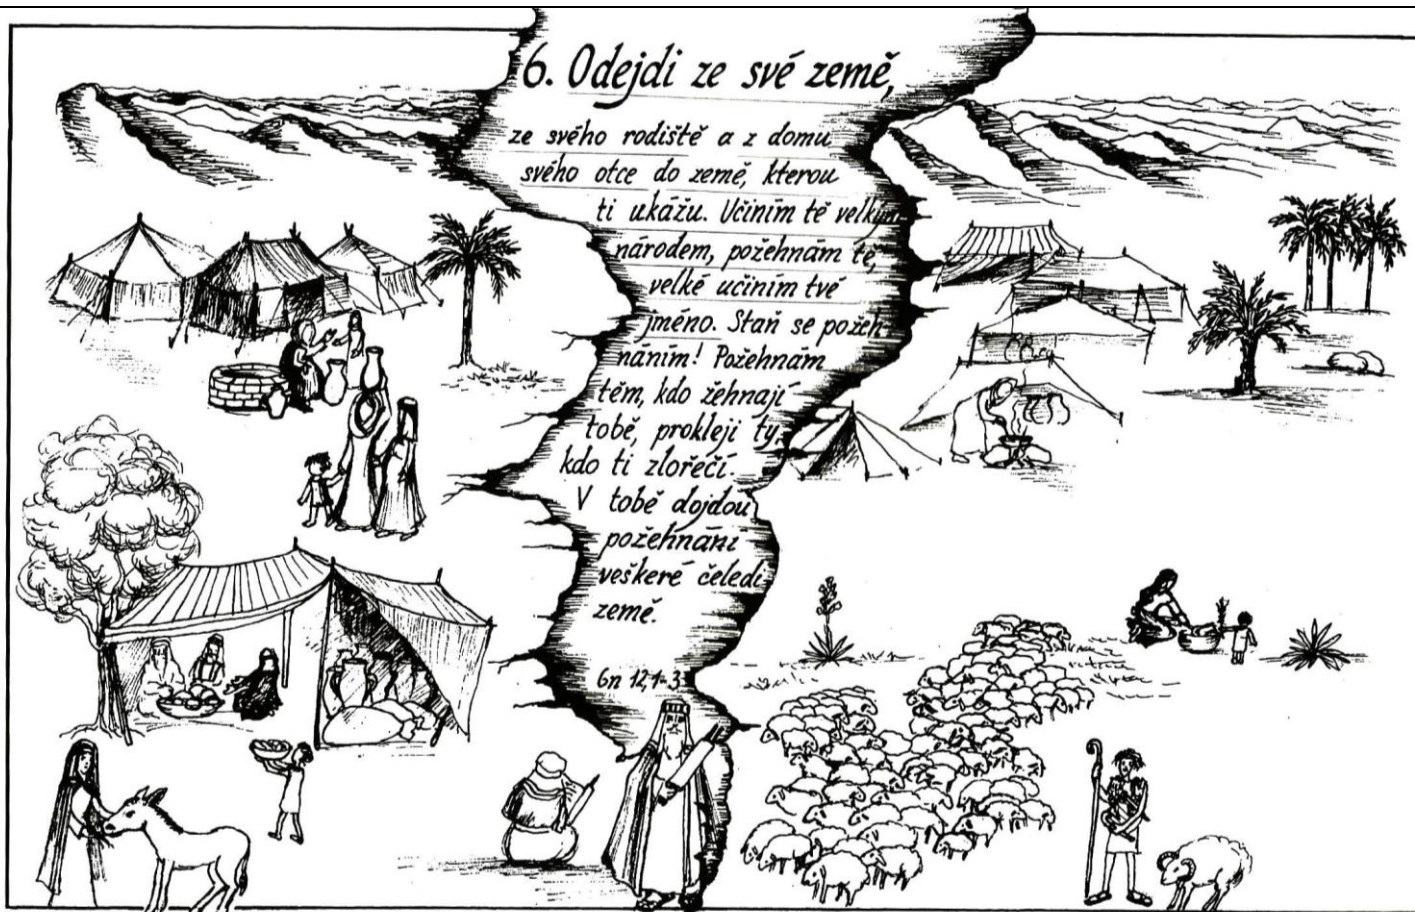 6. Odejdi ze své země,
ze svého rodiště a z domu
svého otce do země, kterou
ti ukážu. Učiním tě velkým
národem, požehnám tě,
velké učiním tvé
jméno. Staň se požeh-
náním! Požehnám
těm, kdo žehnají
tobě, prokleji ty,
kdo ti zlořečí.
V tobě dojdou
požehnání
veškeré čeledi
země.
Gn 12,1-3